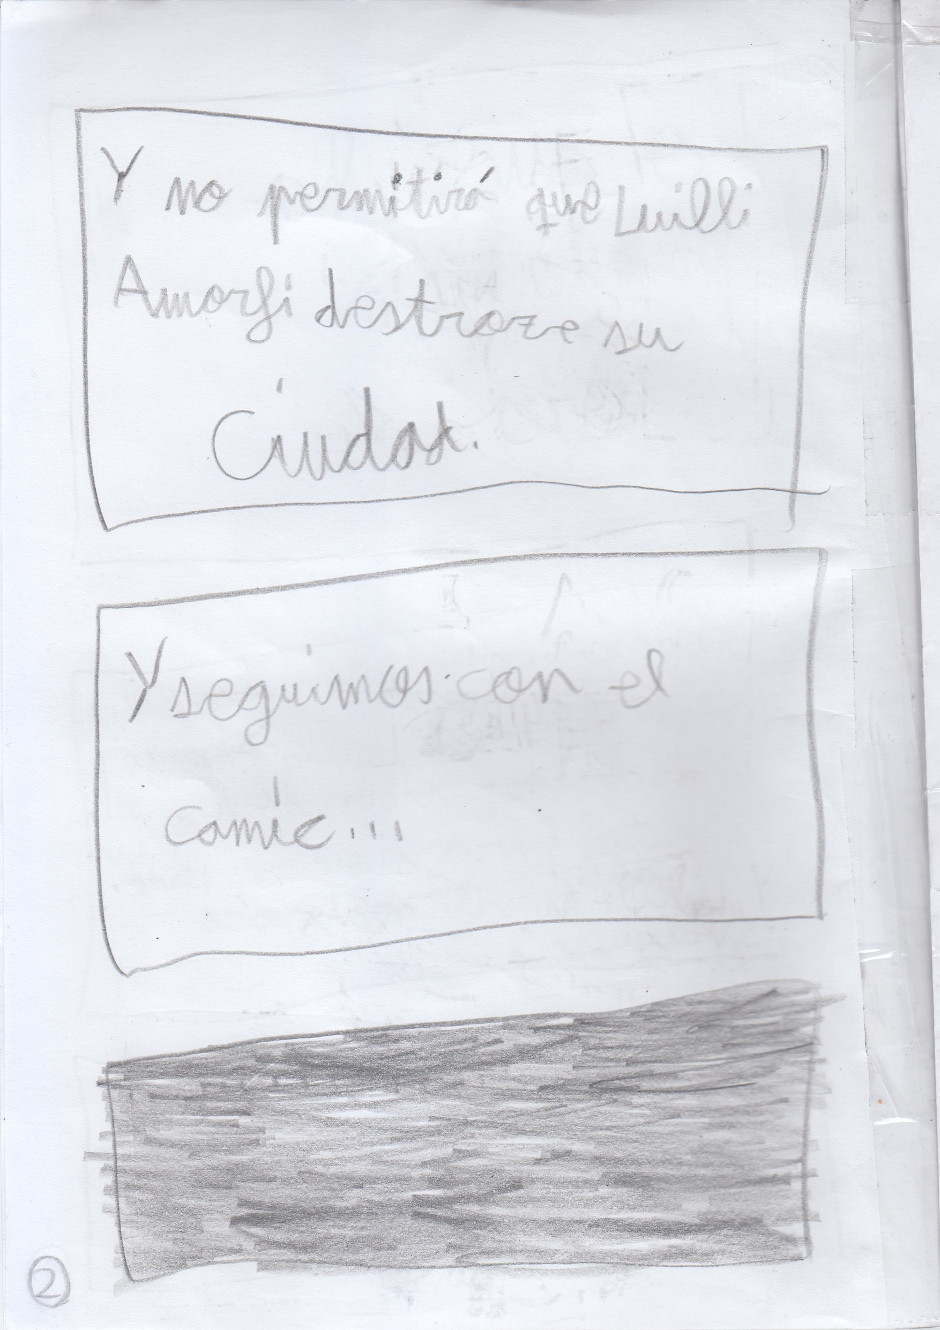 Y no permitirá que Luilli
Amorfi destroze su
Ciudad.
Y seguimos con el
comic...
2